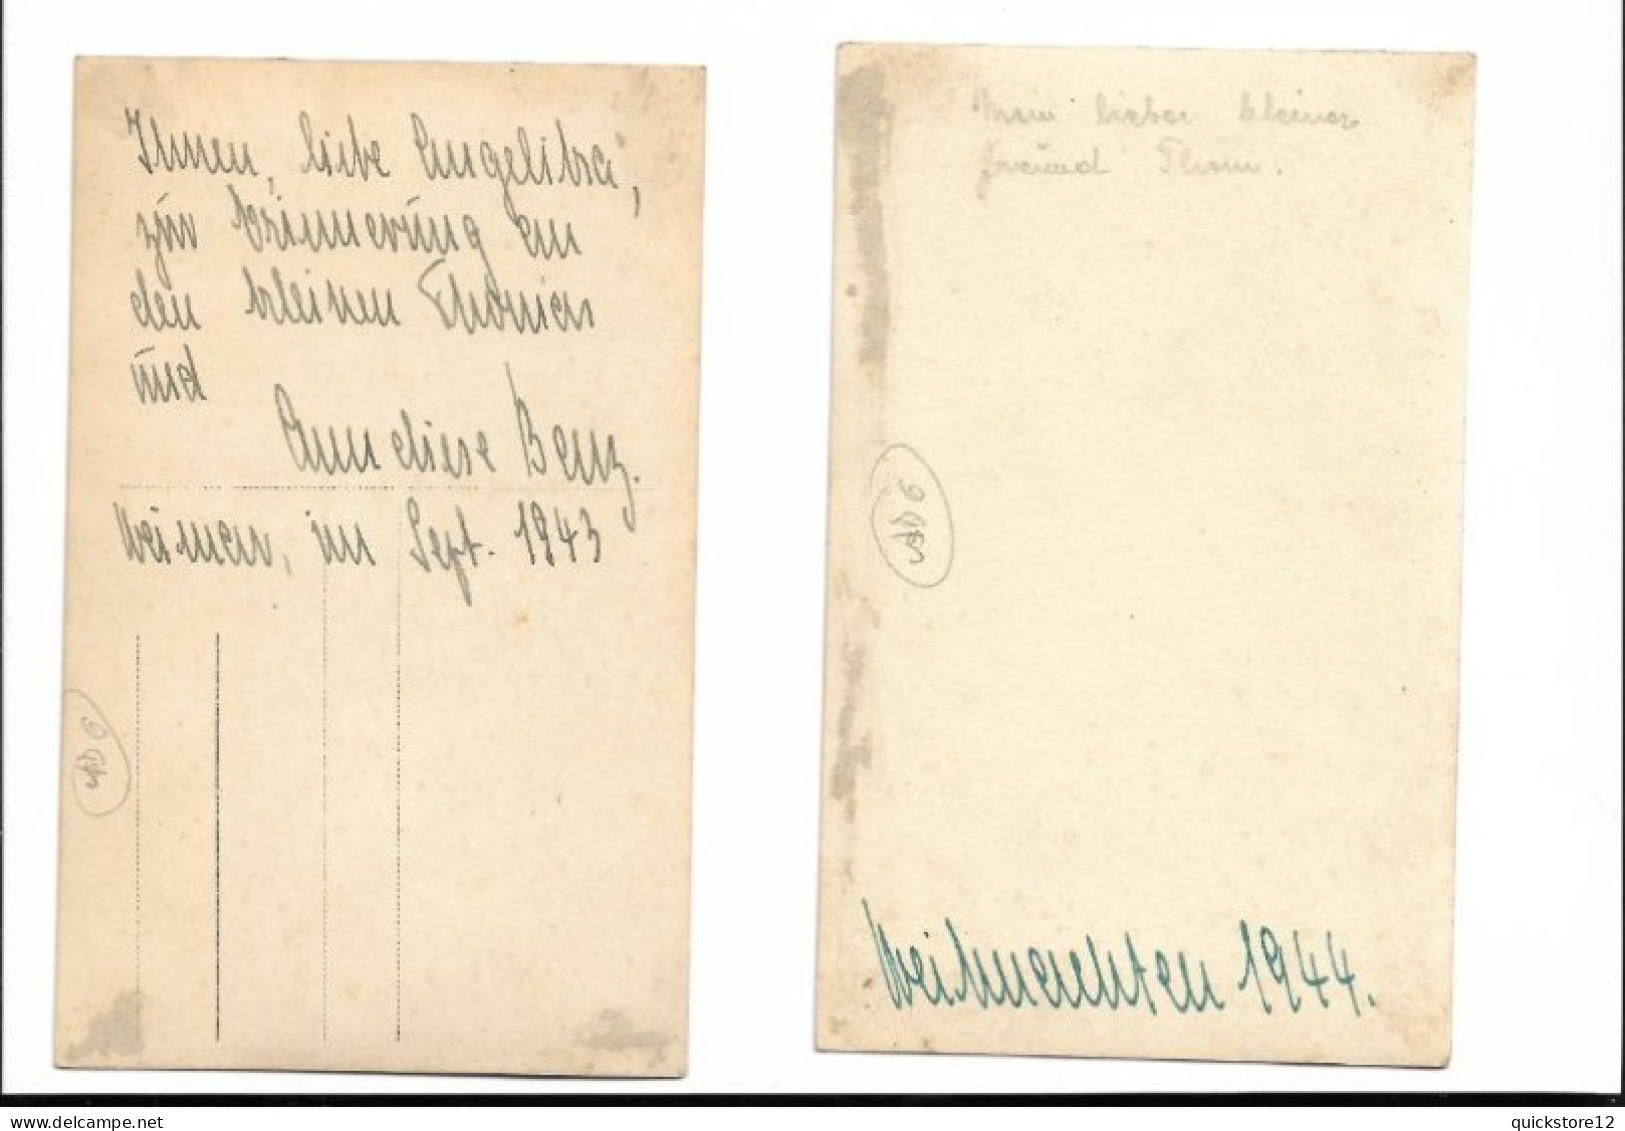 Ihnen, liebe Angelika,
zur Erinnerung an
den kleinen Thomas
und
Anneliese Benz.
Weimar, im Sept. 1943
Mein lieber kleiner
Freund Thom.
Weihnachten 1944.
quickstore12